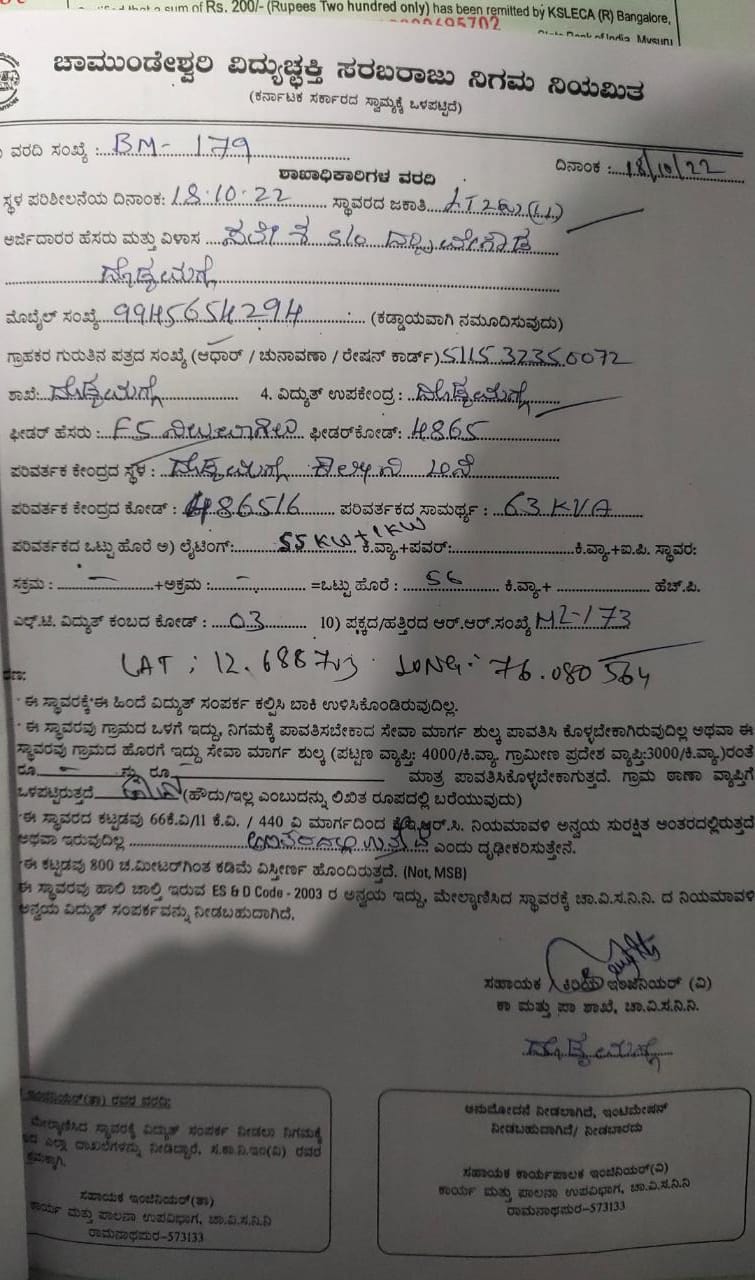 that a sum of Rs. 200/- (Rupees Two hundred only) has been remitted by KSLECA (R) Bangalore,
695702
State Bank of India, Mysuru
ಚಾಮುಂಡೇಶ್ವರಿ ವಿದ್ಯುಚ್ಛಕ್ತಿ ಸರಬರಾಜು ನಿಗಮ ನಿಯಮಿತ
(ಕರ್ನಾಟಕ ಸರ್ಕಾರದ ಸ್ವಾಮ್ಯಕ್ಕೆ ಒಳಪಟ್ಟಿದೆ)
ವರದಿ ಸಂಖ್ಯೆ :BM-179 ದಿನಾಂಕ :18/10/22
ಶಾಖಾಧಿಕಾರಿಗಳ ವರದಿ
ಸ್ಥಳ ಪರಿಶೀಲನೆಯ ದಿನಾಂಕ: 18.10.22 ಸ್ಥಾವರದ ಜಕಾತಿ
ಅರ್ಜಿದಾರರ ಹೆಸರು ಮತ್ತು ವಿಳಾಸ S/o
ದೊಡ್ಡಮಗ್ಗೆ
ಮೊಬೈಲ್ ಸಂಖ್ಯೆ 9945654294 (ಕಡ್ಡಾಯವಾಗಿ ನಮೂದಿಸುವುದು)
ಗ್ರಾಹಕರ ಗುರುತಿನ ಪತ್ರದ ಸಂಖ್ಯೆ (ಆಧಾರ್ / ಚುನಾವಣಾ / ರೇಷನ್ ಕಾರ್ಡ್) 511532350072
ಶಾಖೆ: ದೊಡ್ಡಮಗ್ಗೆ 4. ವಿದ್ಯುತ್ ಉಪಕೇಂದ್ರ : ದೊಡ್ಡಮಗ್ಗೆ
ಫೀಡರ್ ಹೆಸರು : F5 ಫೀಡರ್‌ಕೋಡ್: 4865
ಪರಿವರ್ತಕ ಕೇಂದ್ರದ ಸ್ಥಳ : ದೊಡ್ಡಮಗ್ಗೆ ಕಾಲೋನಿ
ಪರಿವರ್ತಕ ಕೇಂದ್ರದ ಕೋಡ್ : 486516 ಪರಿವರ್ತಕದ ಸಾಮರ್ಥ್ಯ : 63 KVA
ಪರಿವರ್ತಕದ ಒಟ್ಟು ಹೊರೆ ಅ) ಲೈಟಿಂಗ್: 55 KW + 1KW ಕಿ.ವ್ಯಾ+ಪವರ್: ಕಿ.ವ್ಯಾ+ಐ.ಪಿ. ಸ್ಥಾವರ:
ಸಕ್ರಮ : - +ಅಕ್ರಮ : - =ಒಟ್ಟು ಹೊರೆ : 56 ಕಿ.ವ್ಯಾ+ ಹೆಚ್.ಪಿ.
ಎಲ್.ಟಿ. ವಿದ್ಯುತ್ ಕಂಬದ ಕೋಡ್ : 03 10) ಪಕ್ಕದ/ಹತ್ತಿರದ ಆರ್.ಆರ್.ಸಂಖ್ಯೆ ML-173
LAT : 12.688703 LONG :- 76.080564
ಈ ಸ್ಥಾವರಕ್ಕೆ ಈ ಹಿಂದೆ ವಿದ್ಯುತ್ ಸಂಪರ್ಕ ಕಲ್ಪಿಸಿ ಬಾಕಿ ಉಳಿಸಿಕೊಂಡಿರುವುದಿಲ್ಲ.
ಈ ಸ್ಥಾವರವು ಗ್ರಾಮದ ಒಳಗೆ ಇದ್ದು, ನಿಗಮಕ್ಕೆ ಪಾವತಿಸಬೇಕಾದ ಸೇವಾ ಮಾರ್ಗ ಶುಲ್ಕ ಪಾವತಿಸಿ ಕೊಳ್ಳಬೇಕಾಗಿರುವುದಿಲ್ಲ ಅಥವಾ ಈ
ಸ್ಥಾವರವು ಗ್ರಾಮದ ಹೊರಗೆ ಇದ್ದು ಸೇವಾ ಮಾರ್ಗ ಶುಲ್ಕ (ಪಟ್ಟಣ ವ್ಯಾಪ್ತಿ: 4000/ಕಿ.ವ್ಯಾ. ಗ್ರಾಮೀಣ ಪ್ರದೇಶ ವ್ಯಾಪ್ತಿ:3000/ಕಿ.ವ್ಯಾ.)ರಂತೆ
ರೂ ರೂ. ಮಾತ್ರ ಪಾವತಿಸಿಕೊಳ್ಳಬೇಕಾಗುತ್ತದೆ. ಗ್ರಾಮ ಠಾಣಾ ವ್ಯಾಪ್ತಿಗೆ
ಒಳಪಟ್ಟಿರುತ್ತದೆ (ಹೌದು/ಇಲ್ಲ ಎಂಬುದನ್ನು ಲಿಖಿತ ರೂಪದಲ್ಲಿ ಬರೆಯುವುದು)
ಈ ಸ್ಥಾವರದ ಕಟ್ಟಡವು 66ಕೆ.ವಿ/11 ಕೆ.ವಿ. / 440 ವಿ ಮಾರ್ಗದಿಂದ ಕೆ.ಇ.ಆರ್.ಸಿ. ನಿಯಮಾವಳಿ ಅನ್ವಯ ಸುರಕ್ಷಿತ ಅಂತರದಲ್ಲಿರುತ್ತದೆ
ಅಥವಾ ಇರುವುದಿಲ್ಲ ಎಂದು ದೃಢೀಕರಿಸುತ್ತೇನೆ.
ಈ ಕಟ್ಟಡವು 800 ಚ.ಮೀಟರ್‌ಗಿಂತ ಕಡಿಮೆ ವಿಸ್ತೀರ್ಣ ಹೊಂದಿರುತ್ತದೆ. (Not, MSB)
ಈ ಸ್ಥಾವರವು ಹಾಲಿ ಚಾಲ್ತಿ ಇರುವ ES & D Code - 2003 ರ ಅನ್ವಯ ಇದ್ದು, ಮೇಲ್ಕಾಣಿಸಿದ ಸ್ಥಾವರಕ್ಕೆ ಚಾ.ವಿ.ಸ.ನಿ.ನಿ. ದ ನಿಯಮಾವಳಿ
ಅನ್ವಯ ವಿದ್ಯುತ್ ಸಂಪರ್ಕವನ್ನು ನೀಡಬಹುದಾಗಿದೆ.
ಸಹಾಯಕ / ಕಿರಿಯ ಇಂಜಿನಿಯರ್ (ವಿ)
ಕಾ ಮತ್ತು ಪಾ ಶಾಖೆ, ಚಾ.ವಿ.ಸ.ನಿ.ನಿ.
ದೊಡ್ಡಮಗ್ಗೆ
ಇಂಜಿನಿಯರ್(ತಾ) ರವರ ವರದಿ:
ಮೇಲ್ಕಾಣಿಸಿದ ಸ್ಥಾವರಕ್ಕೆ ವಿದ್ಯುತ್ ಸಂಪರ್ಕ ನೀಡಲು ನಿಗಮಕ್ಕೆ
ಎಲ್ಲಾ ದಾಖಲೆಗಳನ್ನು ನೀಡಿದ್ದಾರೆ, ಸ.ಕಾ.ನಿ.ಇಂ(ವಿ) ರವರ
ಕ್ರಮಕ್ಕಾಗಿ.
ಸಹಾಯಕ ಇಂಜಿನಿಯರ್(ತಾ)
ಕಾರ್ಯ ಮತ್ತು ಪಾಲನಾ ಉಪವಿಭಾಗ, ಚಾ.ವಿ.ಸ.ನಿ.ನಿ
ರಾಮನಾಥಪುರ-573133
ಅನುಮೋದನೆ ನೀಡಲಾಗಿದೆ, ಇಂಟಿಮೇಷನ್
ನೀಡಬಹುದಾಗಿದೆ/ ನೀಡಬಾರದು
ಸಹಾಯಕ ಕಾರ್ಯಪಾಲಕ ಇಂಜಿನಿಯರ್(ವಿ)
ಕಾರ್ಯ ಮತ್ತು ಪಾಲನಾ ಉಪವಿಭಾಗ, ಚಾ.ವಿ.ಸ.ನಿ.ನಿ
ರಾಮನಾಥಪುರ-573133